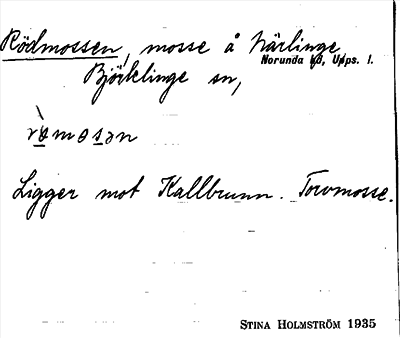 Rödmossen, mosse å Närlinge,
Norunda hd, Upps. l.
Björklinge sn,
rø̀mosən
Ligger mot Kallbrunn. Torvmosse.
STINA HOLMSTRÖM 1935